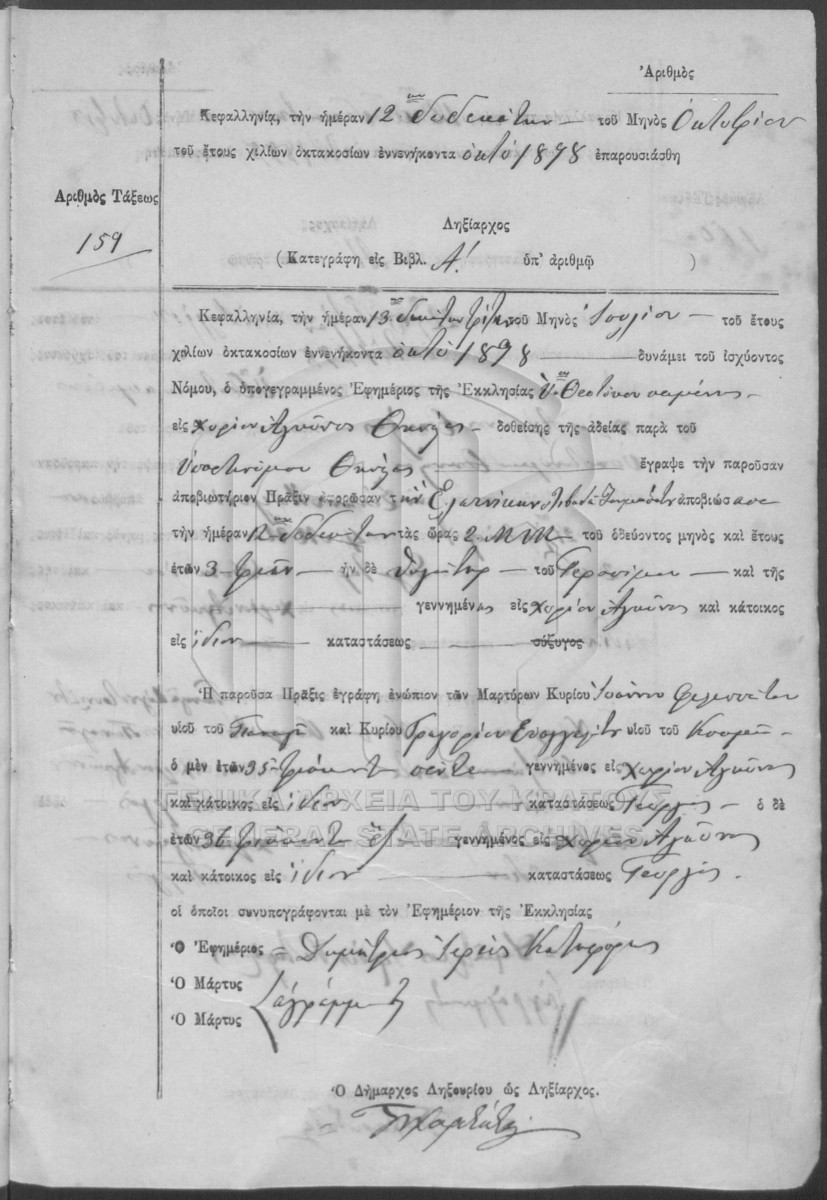 Ἀριθμὸς
Κεφαλληνία, τὴν ἡμέραν 12 δωδεκάτην τοῦ Μηνὸς Ὀκτωβρίου
τοῦ ἔτους χιλίων ὀκτακοσίων ἐννενήκοντα ὀκτὼ 1898 ἐπαρουσιάσθη
Ἀριθμὸς Τάξεως
159
Ληξίαρχος
(Κατεγράφη εἰς Βιβλ. Α΄. ὑπ' ἀριθμῷ )
Κεφαλληνία, τὴν ἡμέραν 13 δεκάτην τρίτην τοῦ Μηνὸς Ἰουλίου τοῦ ἔτους
χιλίων ὀκτακοσίων ἐννενήκοντα ὀκτὼ 1898 δυνάμει τοῦ ἰσχύοντος
Νόμου, ὁ ὑπογεγραμμένος Ἐφημέριος τῆς Ἐκκλησίας
εἰς χωρίον Ἀγκῶνος Θηνέας δοθείσης τῆς ἀδείας παρὰ τοῦ
Ὑπαστυνόμου Θηνέας ἔγραψε τὴν παροῦσαν
ἀποβιωτήριον Πρᾶξιν ἀποβιώσασα
τὴν ἡμέραν 12 δωδεκάτην τὰς ὥρας 2 Μ.Μ. τοῦ ὁδεύοντος μηνὸς καὶ ἔτους
ἐτῶν 3 τριῶν ἦν δὲ θυγάτηρ τοῦ Γερασίμου καὶ τῆς
γεννημένος εἰς χωρίον Ἀγκῶνος καὶ κάτοικος
εἰς ἴδιον καταστάσεως σύζυγος
Ἡ παροῦσα Πρᾶξις ἐγράφη ἐνώπιον τῶν Μαρτύρων Κυρίου Ἰωάννου Φιλιππάτου
υἱοῦ τοῦ Παναγῆ καὶ Κυρίου Γρηγορίου υἱοῦ τοῦ Κοσμᾶ
ὁ μὲν ἐτῶν 35 τριάκοντα πέντε γεννημένος εἰς χωρίον Ἀγκῶνος
καὶ κάτοικος εἰς ἴδιον καταστάσεως Γεωργὸς ὁ δὲ
ΓΕΝΙΚΑ ΑΡΧΕΙΑ ΤΟΥ ΚΡΑΤΟΥΣ
GENERAL STATE ARCHIVES
ἐτῶν 36 τριάκοντα ἕξ γεννημένος εἰς χωρίον Ἀγκῶνος
καὶ κάτοικος εἰς ἴδιον καταστάσεως Γεωργός.
οἱ ὁποῖοι συνυπογράφονται μὲ τὸν Ἐφημέριον τῆς Ἐκκλησίας
Ὁ Ἐφημέριος Δημήτριος Ἱερεὺς
Ὁ Μάρτυς
ἀγράμματοι
Ὁ Μάρτυς
Ὁ Δήμαρχος Ληξουρίου ὡς Ληξίαρχος.